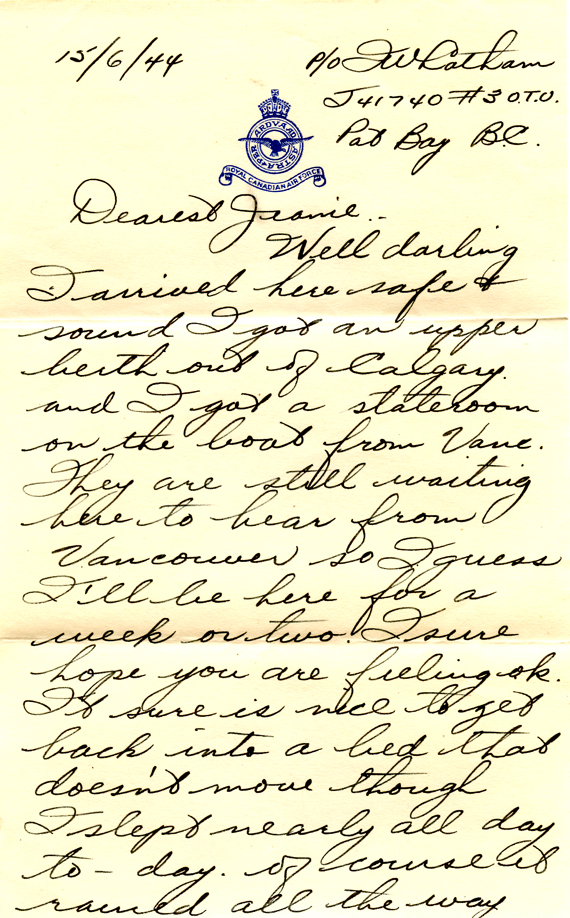 15/6/44
P/O I Whatham
J41740 #3 O.T.U.
Pat Bay B.C.
PER ARDVA AD ASTRA
ROYAL CANADIAN AIR FORCE
Dearest Jeanie..
Well darling
I arrived here safe &
sound I got an upper
berth out of Calgary.
and I got a stateroom
on the boat from Vanc.
They are still waiting
here to hear from
Vancouver so I guess
I'll be here for a
week or two. I sure
hope you are feeling ok.
It sure is nice to get
back into a bed that
doesn't move though
I slept nearly all day
to-day. of course it
rained all the way